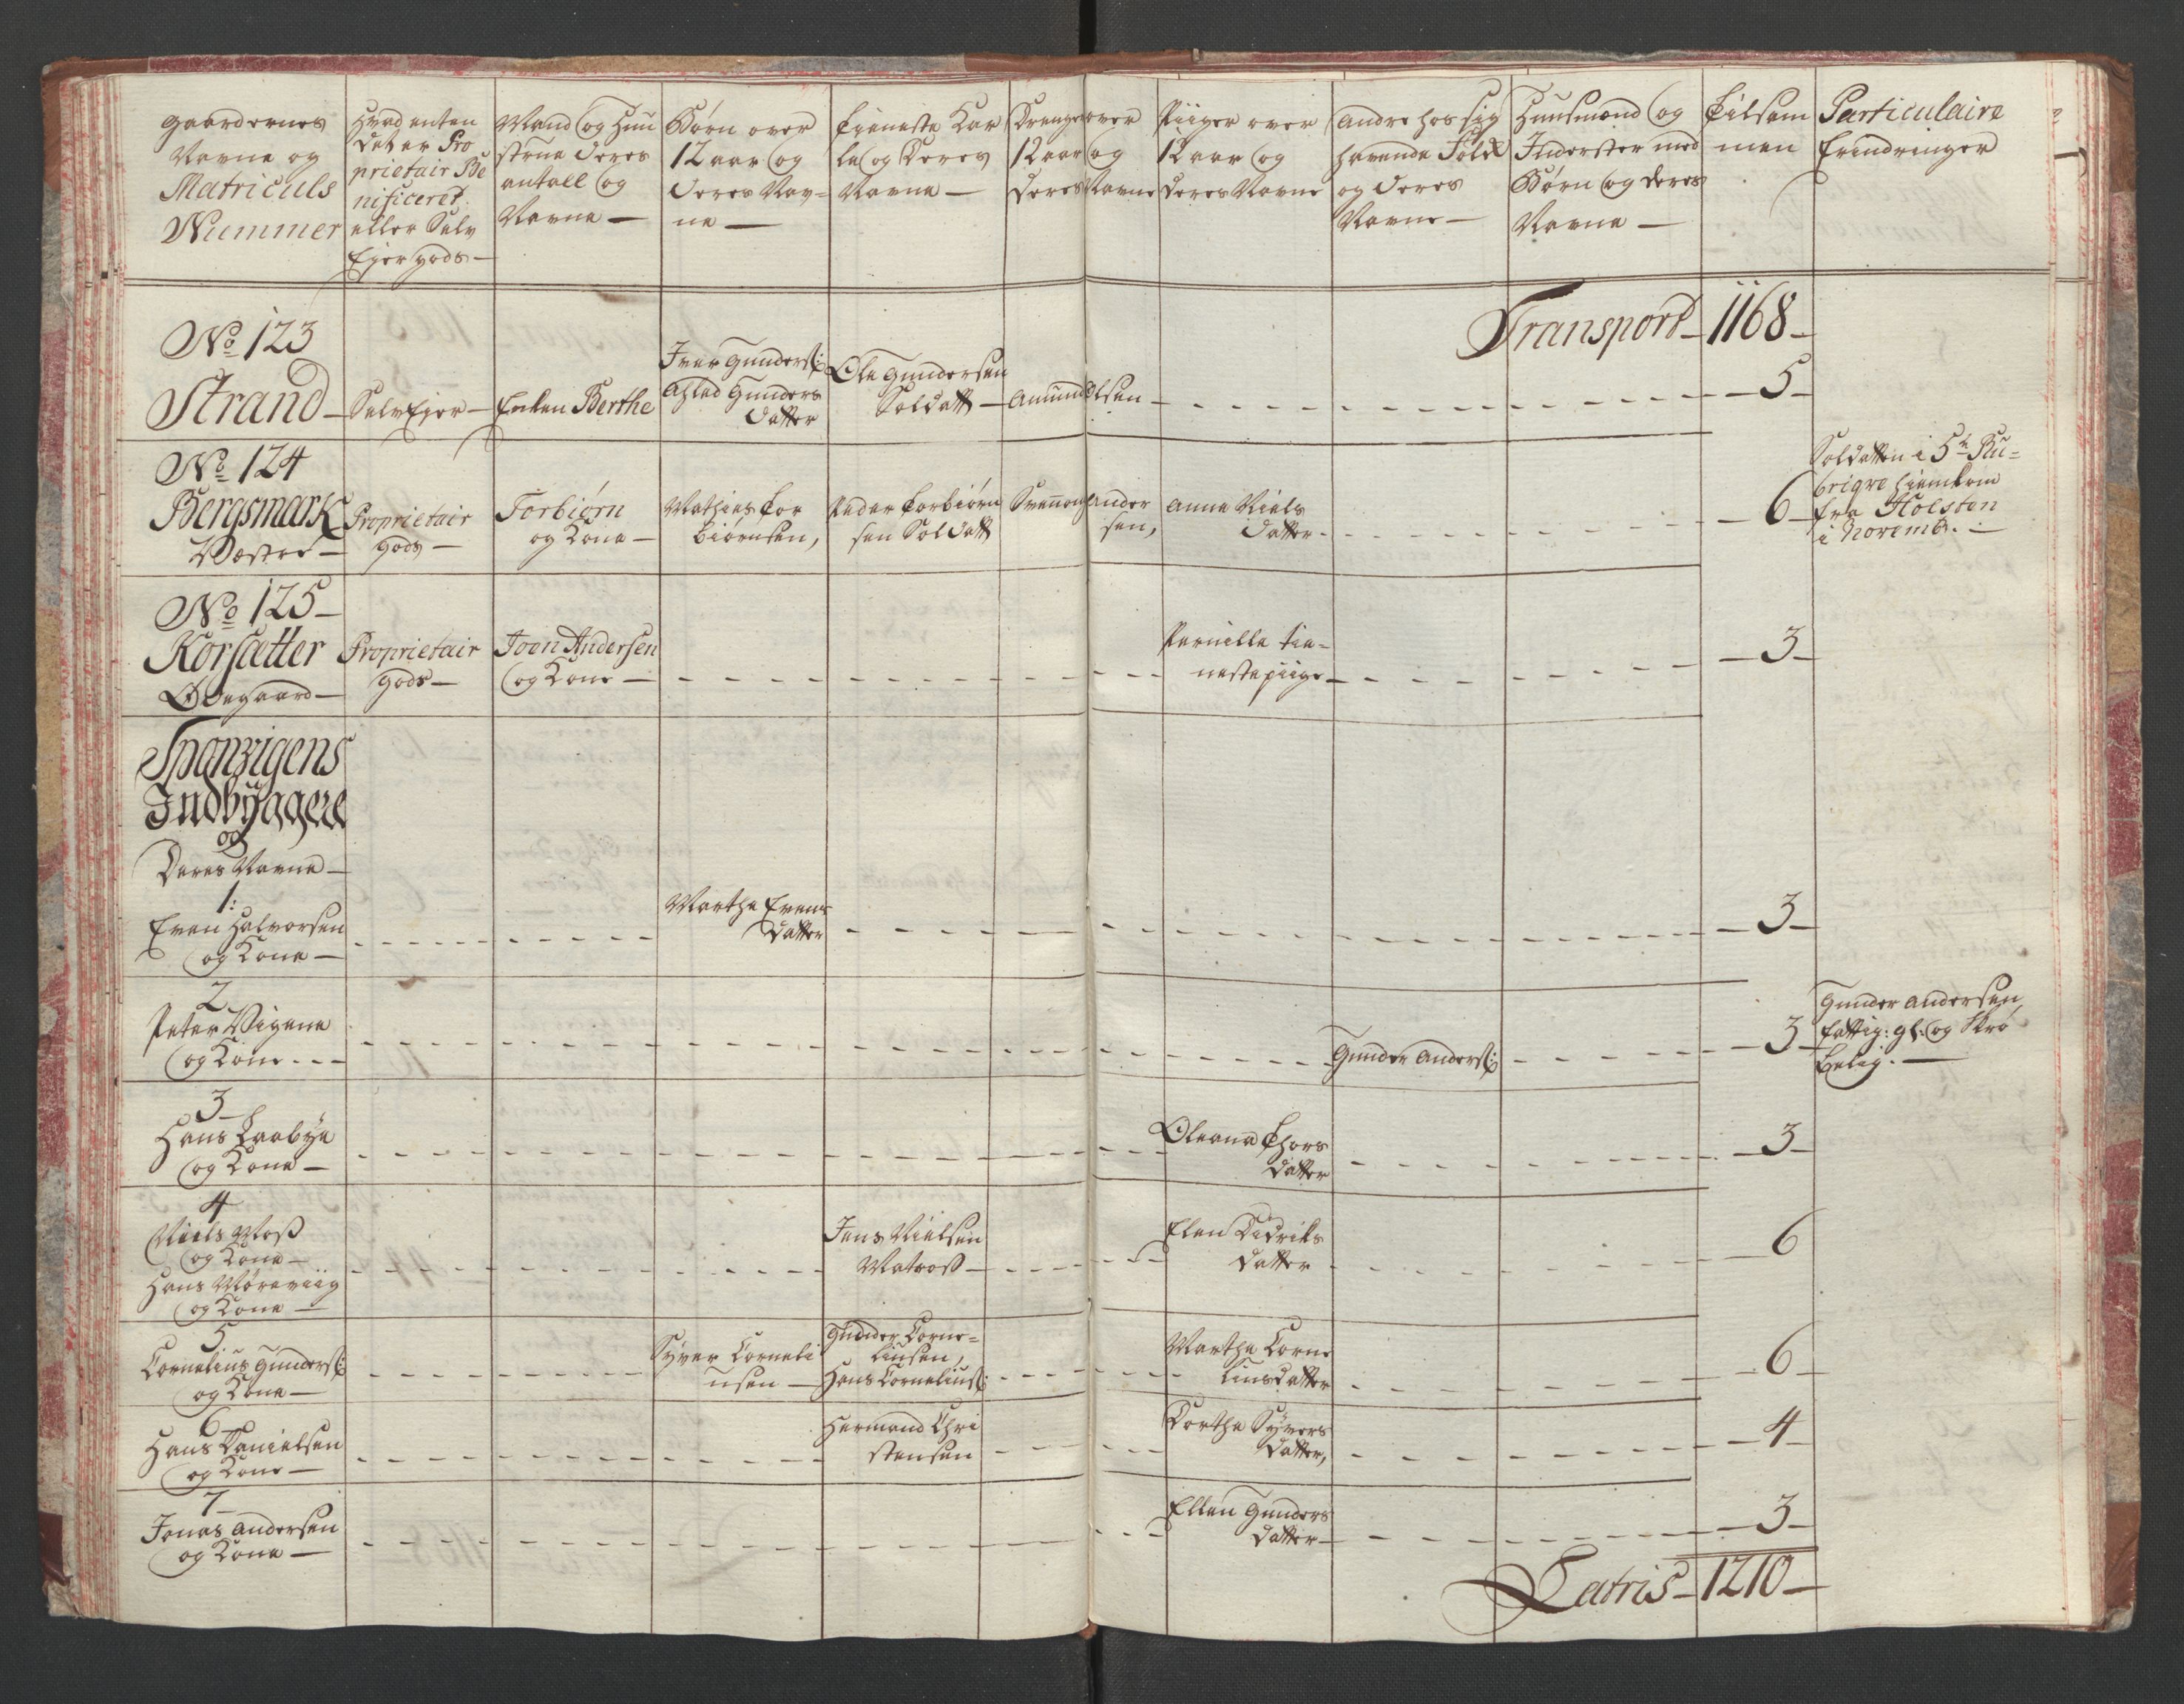 Gaardernes
Navne og
Matriculs
Nummer
Hvad enten
det er Pro
prietair Be
nificered:
eller Selv
Ejer gods —
Mand og Huu
strue deres
antall og
Navne —
Børn over
12 aar og
deres Nav-
ne —
Tieneste Kar
le og deres
Navne —
Drenge over
12 aar og
deres Navne
Piiger over
12 aar og
deres Navne
Andre hos sig
havende Folck
og deres
Navne —
Huusmænd og
Inderster med
Børn og deres
Navne —
Tilsam
men
Particulaire
Erindringer
Transport — 1168 —
No 123
Strand —
SelvEjer —
Enken Berthe
Iver Gunders:
Ahled Gunders
datter
Ole Gundersen
Soldatt —
Amund Olsen —
— 5 —
No 124
Bergsmark
Wæstre —
Proprietair
gods —
Torbiørn
og Kone —
Mathias Tor
biørnsen,
Peder Torbiørn
sen Soldatt
Svennong Ander
sen,
Anne Niels
datter.
— 6 —
Soldatten i 5te Ru-
brique hiemkom
fra Holsten
i Novemb. —
No 125 —
Korsætter
Ødegaard —
Proprietair
gods —
Joen Andersen
og Kone —
Pernille tie-
nestepiige —
— 3 —
Spanvigens
Indbyggere
og
Deres Navne —
1:
Even Halvorsen
og Kone —
Marthe Evens
datter
— 3 —
2
Peter Vigene
og Kone
Gunder Anders:
— 3 —
Gunder Andersen,
fattig: gl: og Skrø
belig. —
3
Hans Laabye
og Kone —
Oleana Thors
datter
— 3 —
4
Niels Moss
og Kone —
Hans Møreviig
og Kone —
Jens Nielsen
Matross —
Elen Didriks
datter
— 6
5
Cornelius Gunders:
og Kone —
Syver Corneli
usen —
Gunder Corne-
liusen,
Hans Cornelius:
Marthe Corne
liusdatter
— 6 —
6
Hans Danielsen
og Kone —
Hermand Chri
stensen
Dorthe Syvers
datter,
— 4 —
7
Jonas Andersen
og Kone —
Ellen Gunders
datter —
— 3 —
Latris — 1210 —